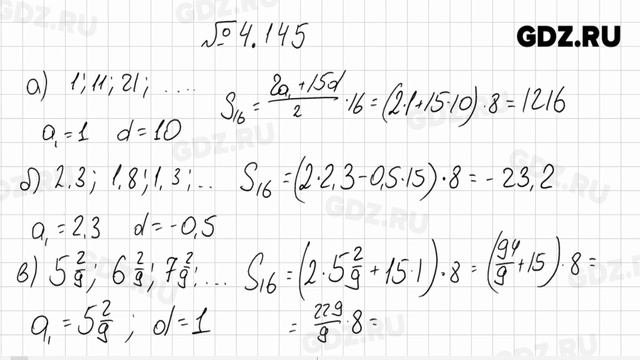 №4.145
GDZ.RU
а) 1; 11; 21; ....
S₁₆ = (2a₁+15d)/2 · 16 = (2·1+15·10)·8 = 1216
a₁ = 1 d = 10
б) 2,3; 1,8; 1,3; ... S₁₆ = (2·2,3-0,5·15)·8 = -23,2
a₁ = 2,3 d = -0,5
в) 5 2/9; 6 2/9; 7 2/9; ... S₁₆ = (2·5 2/9 + 15·1)·8 = (94/9 + 15)·8 =
a₁ = 5 2/9; d = 1 = 229/9 · 8 =